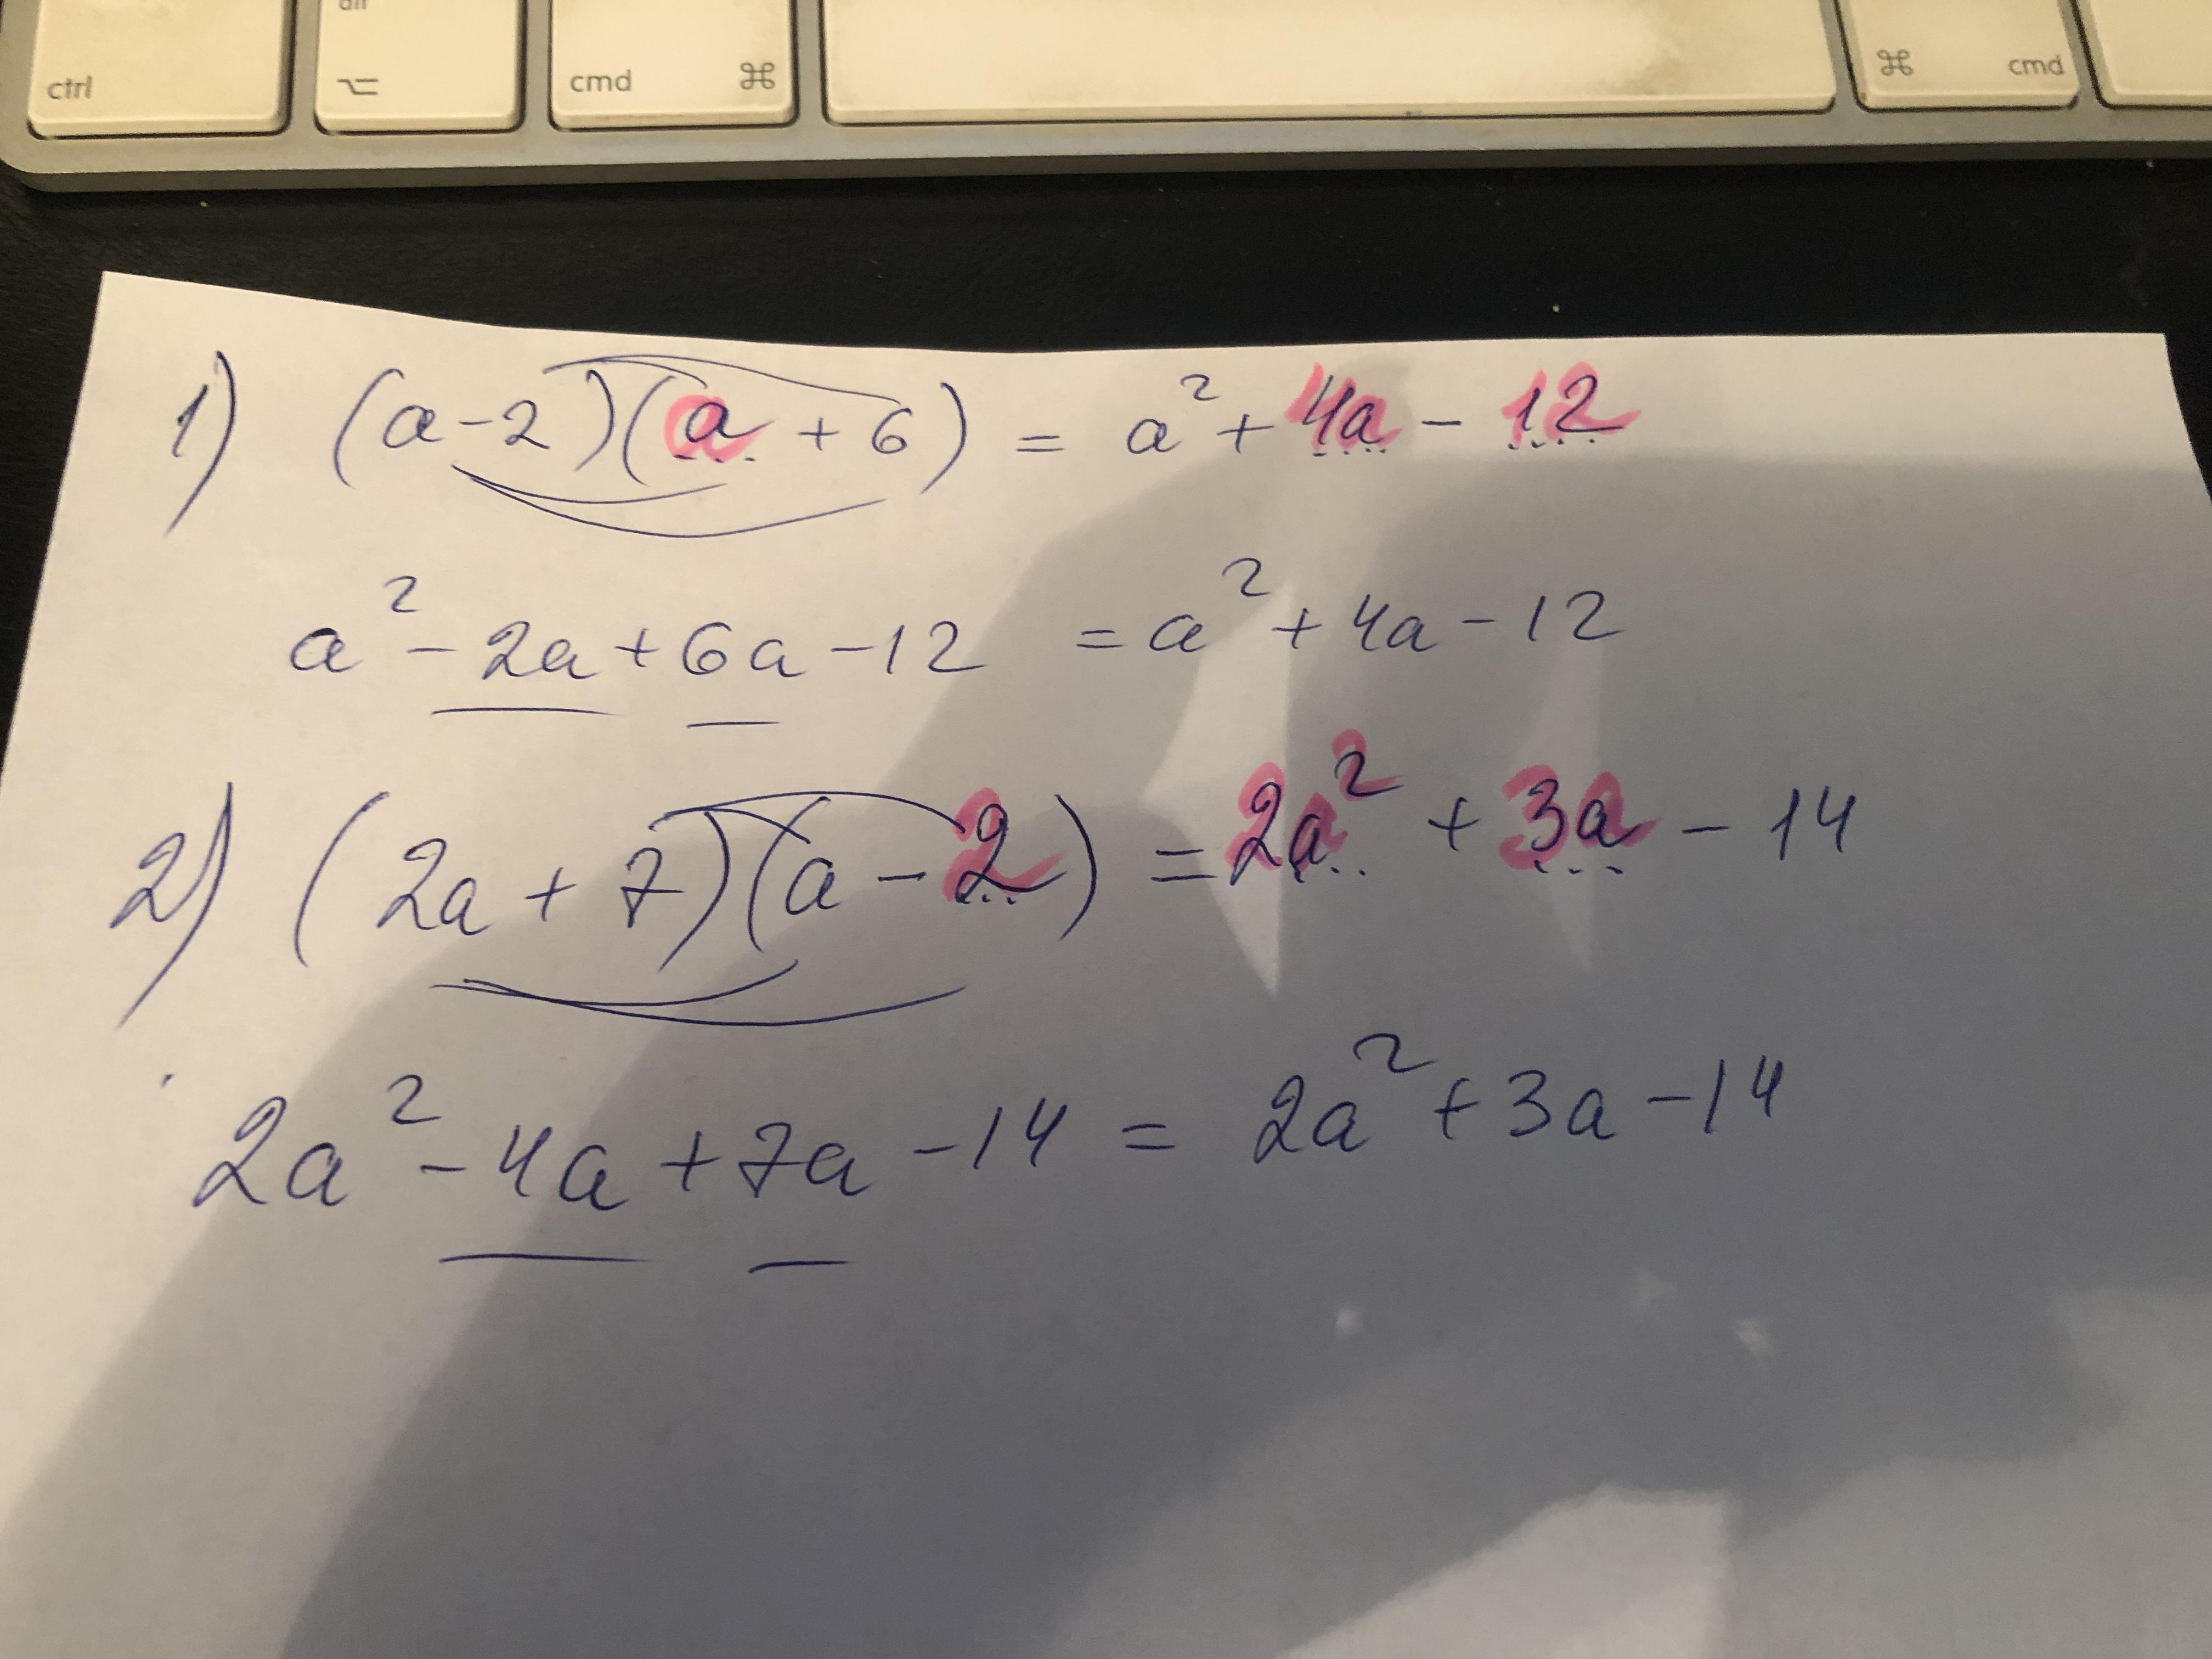 alt
ctrl ⌥ cmd ⌘ ⌘ cmd
1) (a-2)(a+6) = a² + 4a - 12
a² - 2a + 6a - 12 = a² + 4a - 12
2) (2a + 7)(a - 2) = 2a² + 3a - 14
2a² - 4a + 7a - 14 = 2a² + 3a - 14